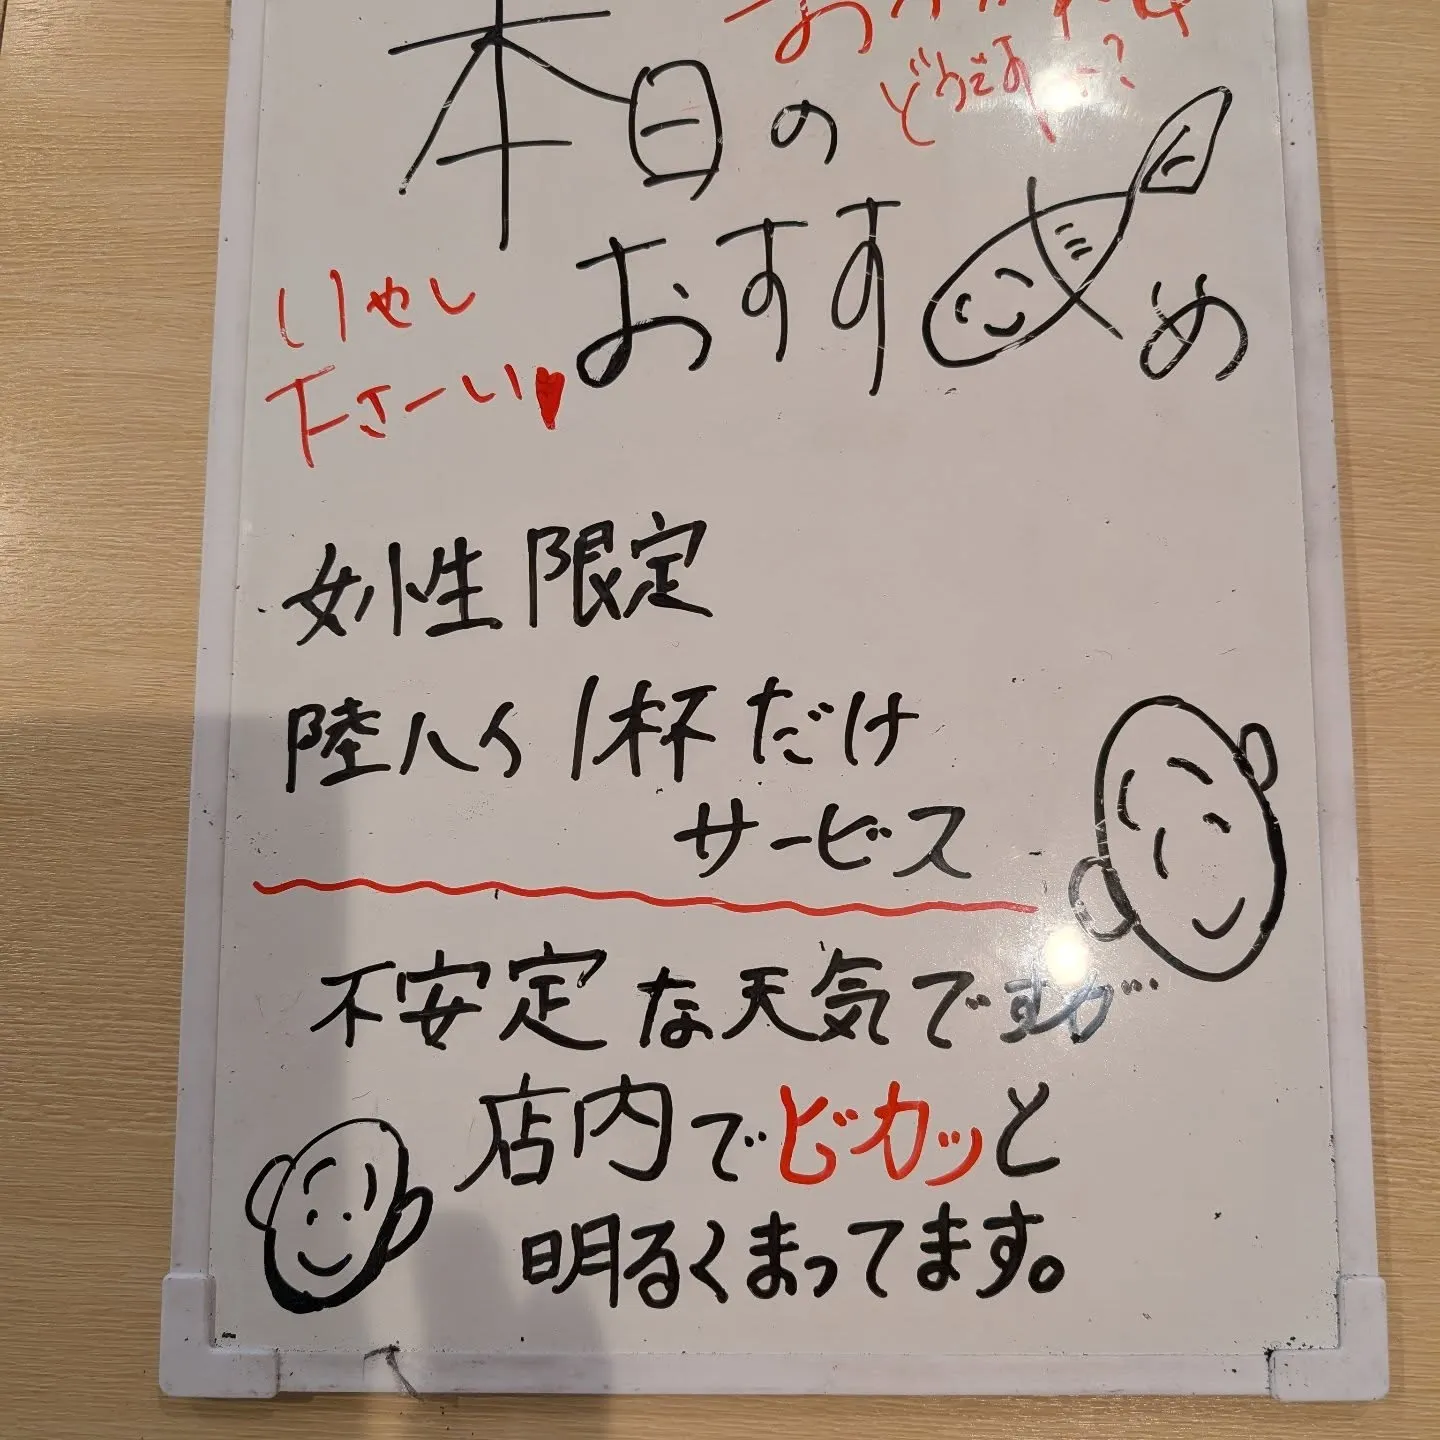 どうですかー?
本日の
おすすめ
いやし
下さーい♥
女性限定
陸ハイ1杯だけ
サービス
不安定な天気ですが…
店内でピカッと
明るくまってます。